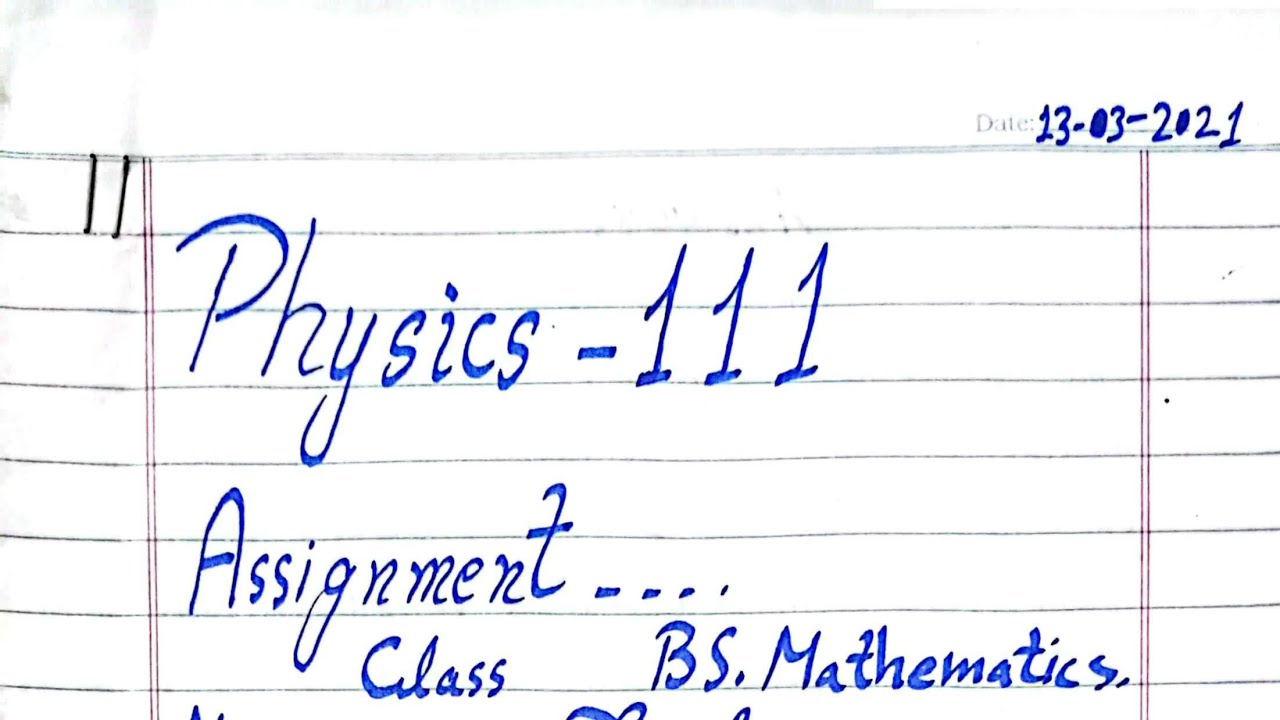 Date: 13-03-2021
Physics - 111
Assignment - - - -
Class BS. Mathematics.